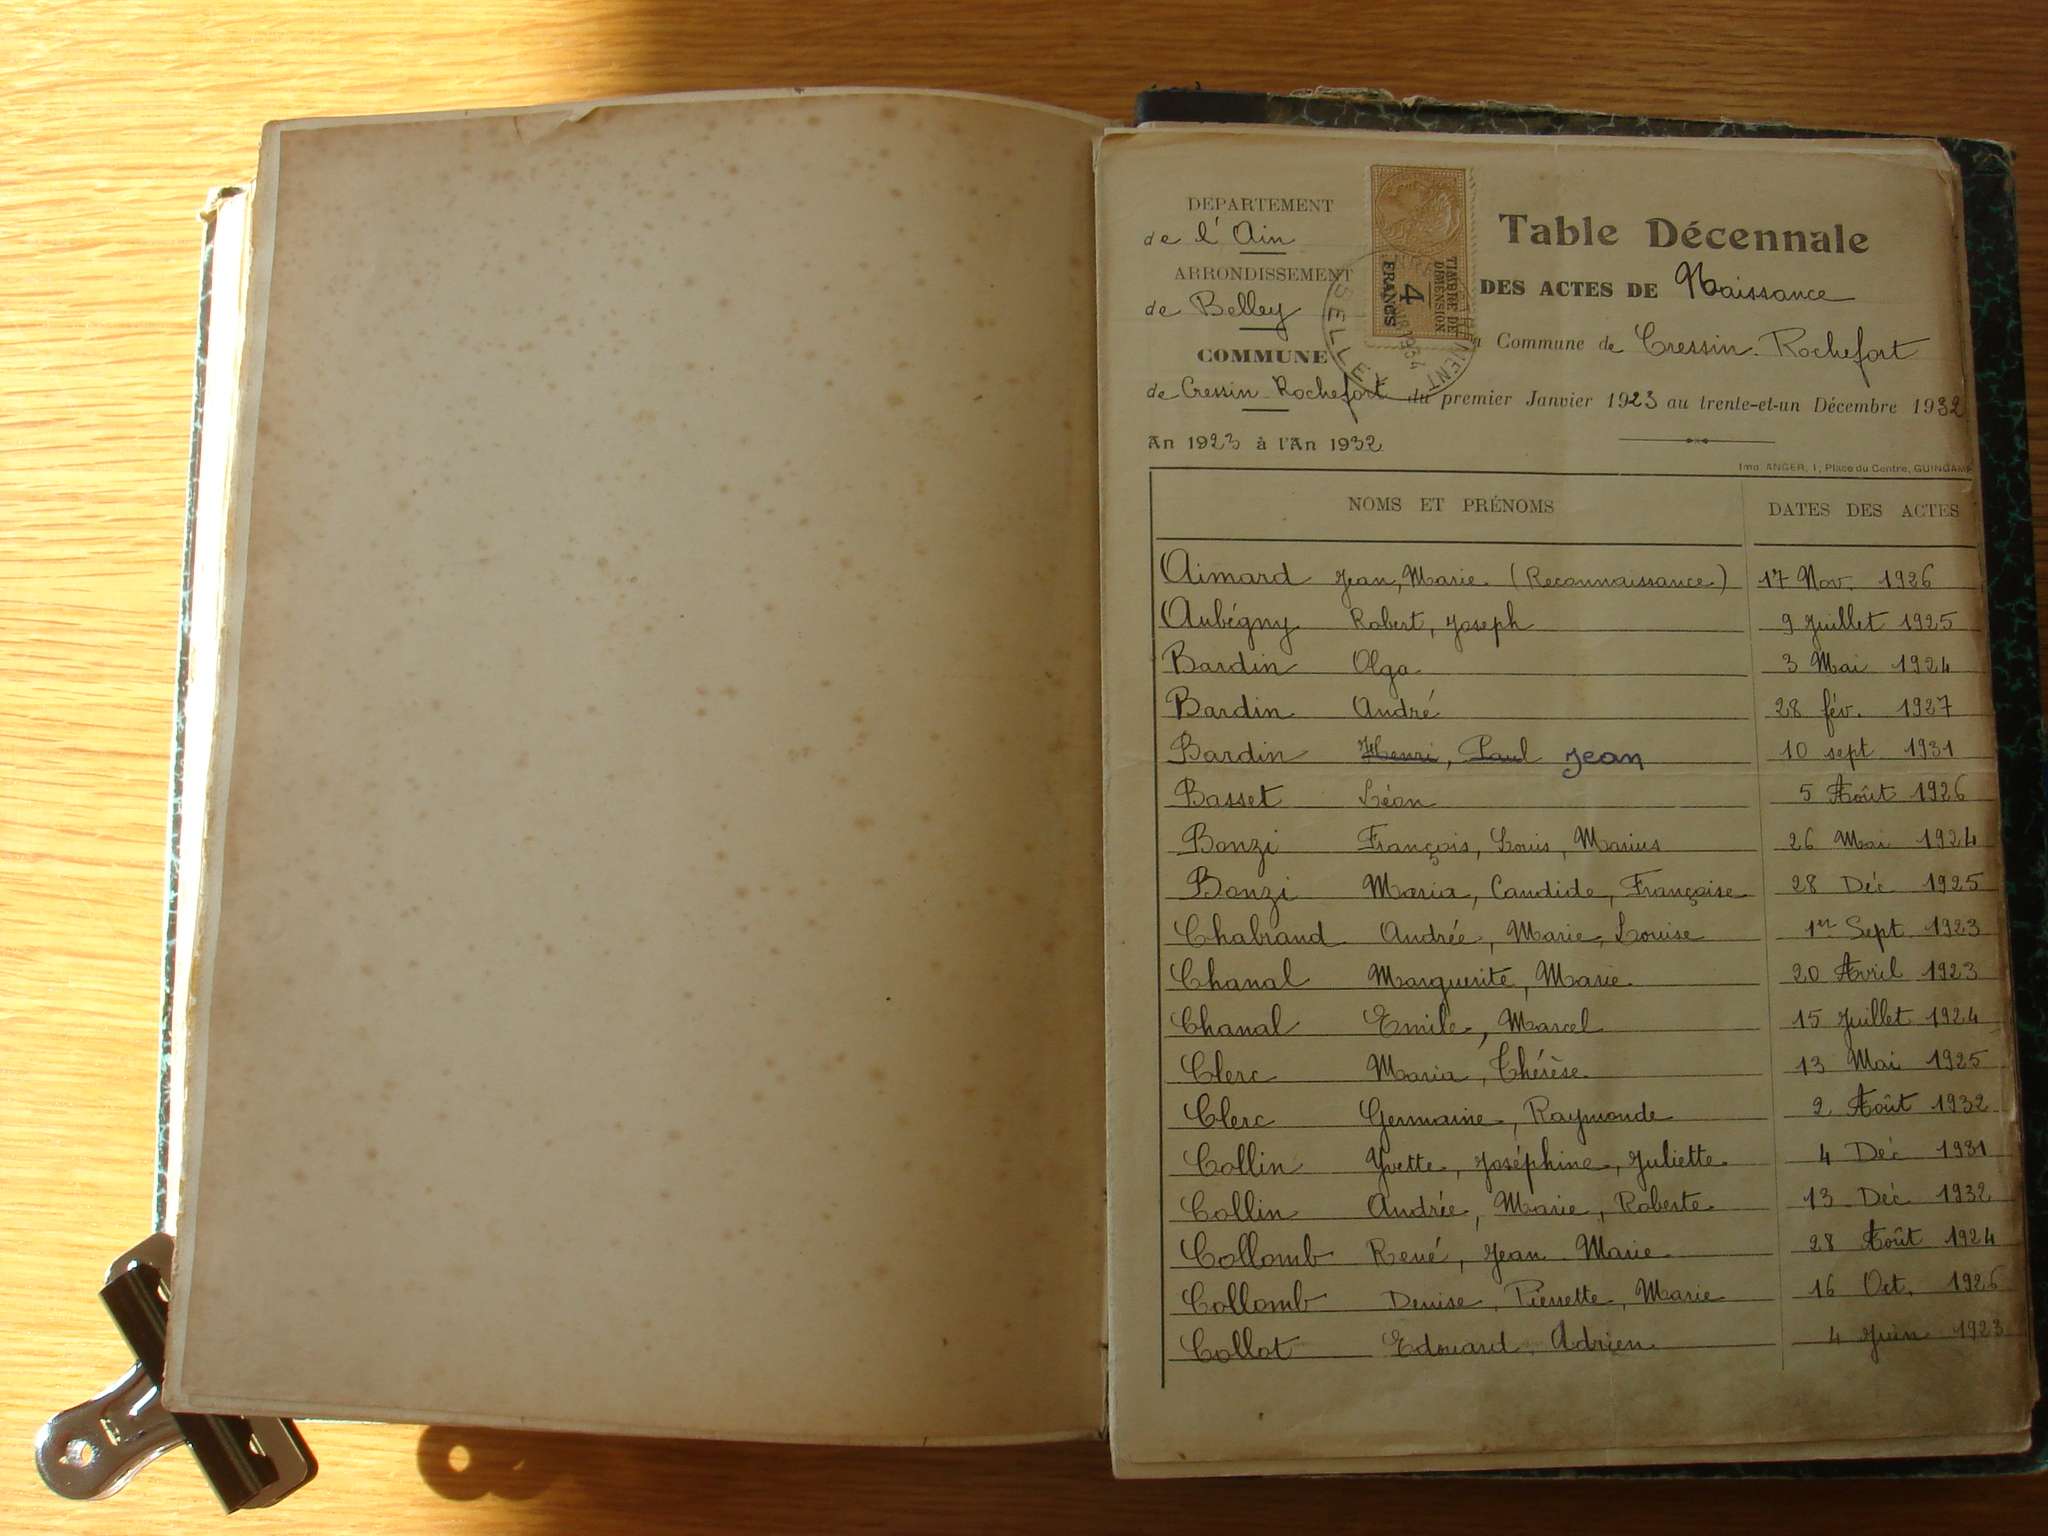 DEPARTEMENT
de l'Ain
ARRONDISSEMENT
de Belley
COMMUNE
de Cressin-Rochefort
An 1923 à l'An 1932
TIMBRE DE
DIMENSION
4
FRANCS
SELLE
1934
Table Décennale
DES ACTES DE Naissance
Commune de Cressin-Rochefort
du premier Janvier 1923 au trente-et-un Décembre 1932
Imp. ANGER, 1, Place du Centre, GUINGAMP
NOMS ET PRÉNOMS DATES DES ACTES
Aimard Jean, Marie (Reconnaissance) 17 Nov. 1926
Aubégny Robert, Joseph 9 Juillet 1925
Bardin Olga 3 Mai 1924
Bardin André 28 fév. 1927
Bardin Henri, Paul Jean 10 sept 1931
Basset Léon 5 Août 1926
Bonzi François, Louis, Marius 26 Mai 1924
Bonzi Maria, Candide, Françoise 28 Déc 1925
Chabrand Andrée, Marie, Louise 1er Sept 1923
Chanal Marguerite, Marie 20 Avril 1923
Chanal Emile, Marcel 15 Juillet 1924
Clerc Maria, Thérèse 13 Mai 1925
Clerc Germaine, Raymonde 2 Août 1932
Collin Yvette, Joséphine, Juliette 4 Déc 1931
Collin Andrée, Marie, Roberte 13 Déc 1932
Collomb René, Jean Marie 28 Août 1924
Collomb Denise, Pierrette, Marie 16 Oct. 1926
Collot Edouard Adrien 4 Juin 1923